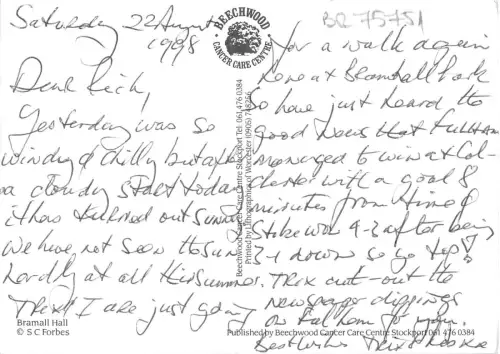 Saturday 22 August
1998
Dear Rich,
Yesterday was so
windy & chilly but after
a cloudy start today
it has turned out sunny
We have not seen the sun
hardly at all this summer.
Trix & I are just going
Bramall Hall
© S C Forbes
BEECHWOOD
CANCER CARE CENTRE
Beechwood Cancer Care Centre Stockport Tel 061 476 0384
Printed by Lithographics of Worcester (0905) 748260
BR75751
for a walk again
here at Bramhall Park
So have just heard the
good news that Fulham
managed to win at Col-
chester with a goal 8
minutes from time &
Stoke won 4-2 after being
2-1 down so go top!
Trix cut out the
newspaper clippings
on Fulham for you
Best wishes Trix &
Published by Beechwood Cancer Care Centre Stockport 061 476 0384